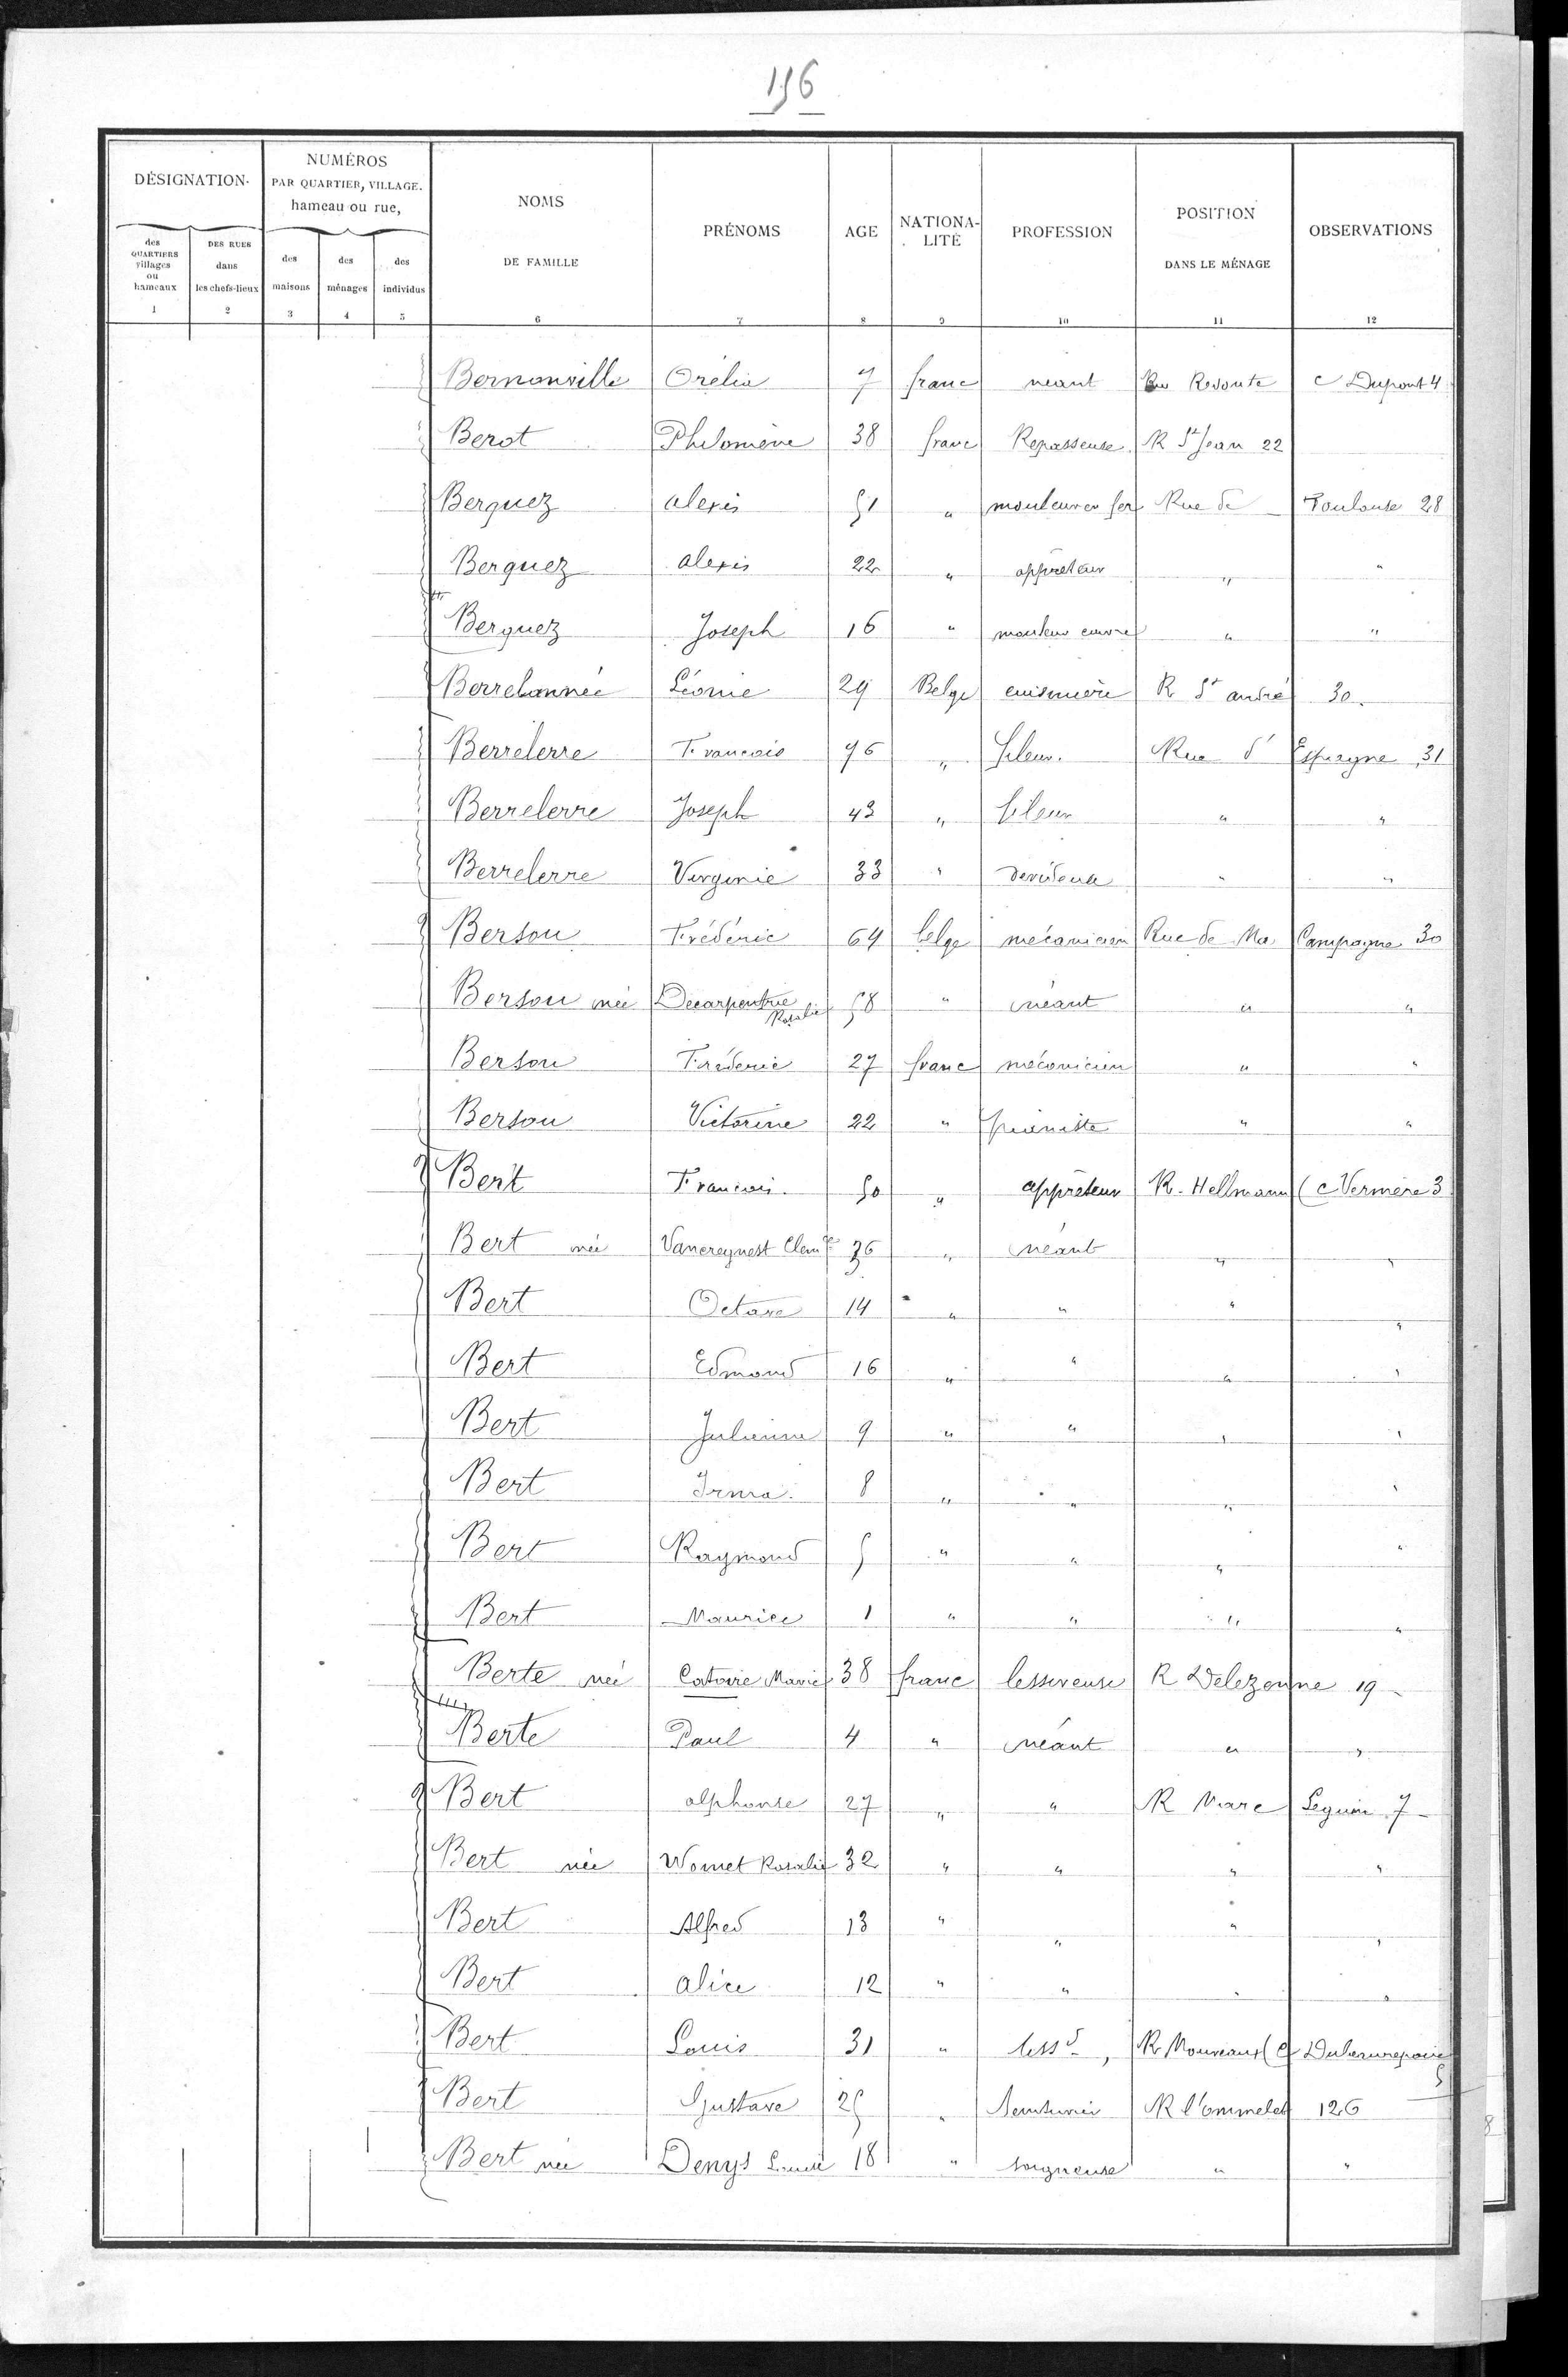 156
DÉSIGNATION
NUMÉROS
PAR QUARTIER, VILLAGE.
hameau ou rue,
NOMS
DE FAMILLE
PRÉNOMS
AGE
NATIONA-
LITÉ
PROFESSION
POSITION
DANS LE MÉNAGE
OBSERVATIONS
des
QUARTIERS
villages
ou
hameaux
DES RUES
dans
les chefs-lieux
des
maisons
des
ménages
des
individus
1 2 3 4 5 6 7 8 9 10 11 12
Bernonville Orélia 7 franc néant Rue Redoute c Dupont 4
Berot Philomène 38 franc Repasseuse R St Jean 22
Berquez alexis 51 " mouleur en fer Rue de Toulouse 28
Berquez alexis 22 " appréteur " "
Berquez Joseph 16 " mouleur cuivre " "
Léonie 29 Belge cuisinière R St andré 30.
Berrelerre Francois 76 " fileur. Rue d' Espagne 31
Berrelerre Joseph 43 " fileur " "
Berrelerre Virginie 33 " " "
Berson Frédéric 64 belge mécanicien Rue de Ma Campagne 30
Berson née Decarpentrie Rosalie 58 " néant " "
Berson Fréderic 27 franc mécanicien " "
Berson Victorine 22 " " "
Bert Francois. 50 " appréteur R. Hellmann (c Vermère 3
Bert née Vancreynest Clemce 36 " néant " "
Bert Octave 14 " " " "
Bert Edmond 16 " " " "
Bert Julienne 9 " " " "
Bert Irma. 8 " " " "
Bert Raymond 5 " " " "
Bert Maurice 1 " " " "
Berte née Catoire Marie 38 franc lessiveuse R Delezenne 19
Berte Paul 4 " néant " "
Bert alphonse 27 " " R Marc Seguin 7
Bert née Womet Rosalie 32 " " " "
Bert Alfred 13 " " " "
Bert alice 12 " " " "
Bert Louis 31 " R Mouveaux (c 5
Bert Gustave 25 " R l'ommelet 126
Bert née Denys Louise 18 " soigneuse " "